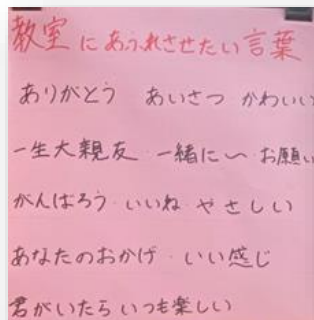 教室にあふれさせたい言葉
ありがとう あいさつ かわいい
一生大親友 一緒に〜 お願い
がんばろう いいね やさしい
あなたのおかげ いい感じ
君がいたらいつも楽しい